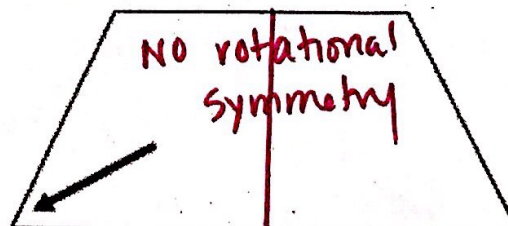 NO rotational
symmetry